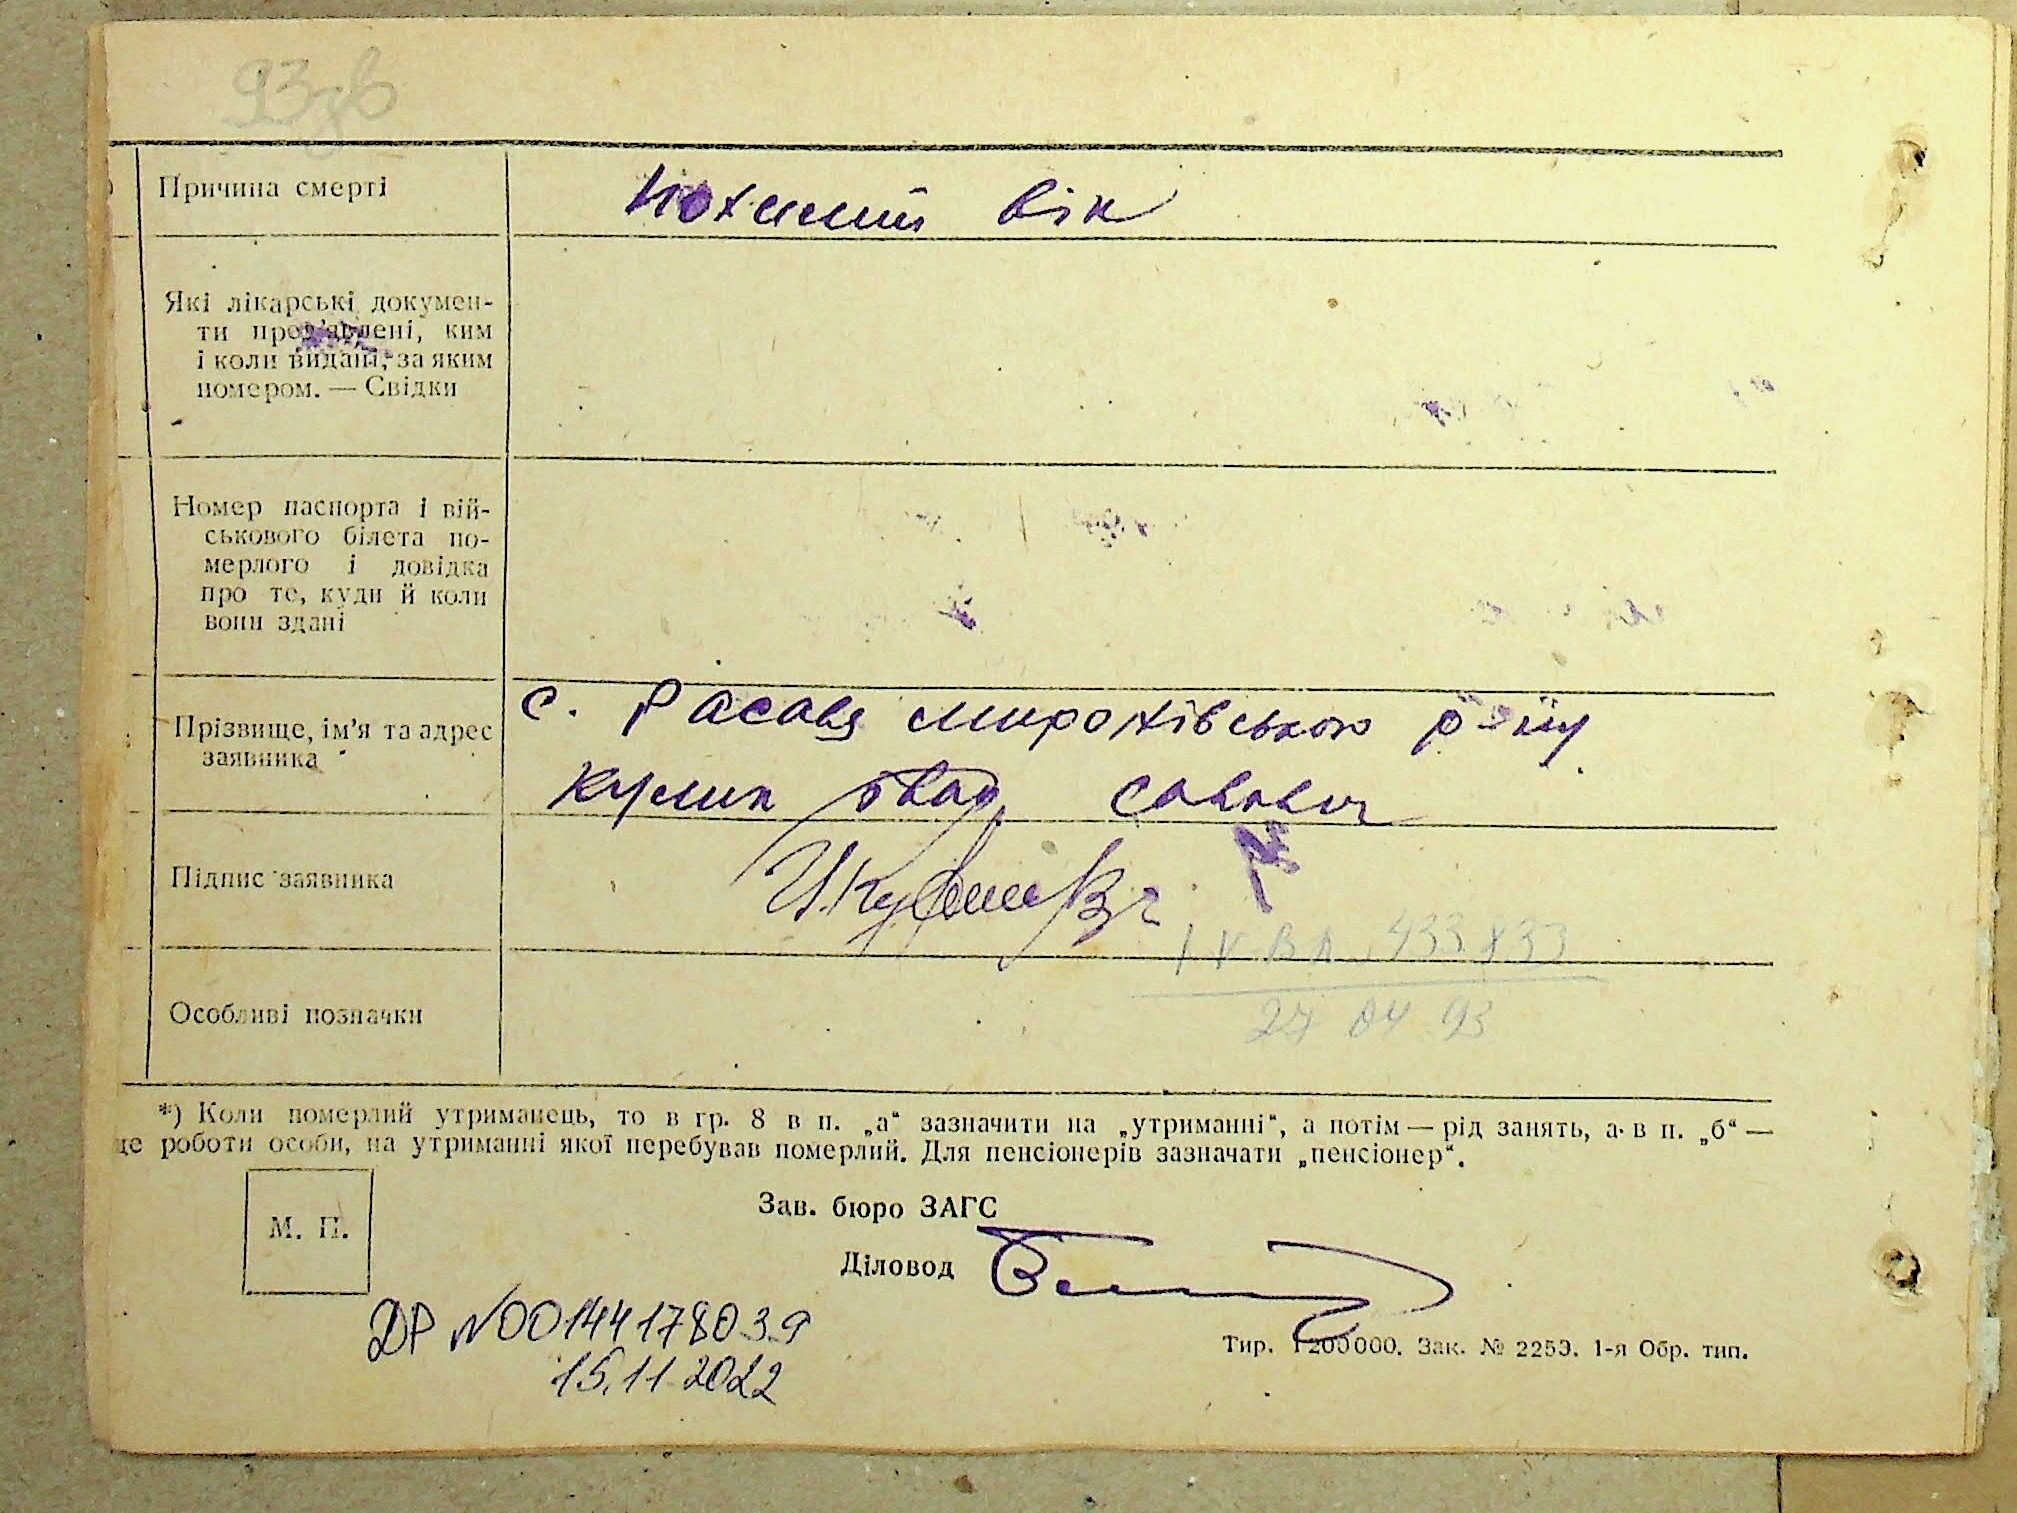 93 зв
Причина смерті
похилий вік
Які лікарські докумен-
ти пред'явлені, ким
і коли видані, за яким
номером. — Свідки
Номер паспорта і вій-
ськового білета по-
мерлого і довідка
про те, куди й коли
вони здані
с. Расава миронівського р-ну
Прізвище, ім'я та адрес
заявника
Кулик Іван Савович
Підпис заявника
IV БЛ 433833
27 04 93
Особливі позначки
*) Коли померлий утриманець, то в гр. 8 в п. „а“ зазначити на „утриманні“, а потім — рід занять, а в п. „б“ —
це роботи особи, на утриманні якої перебував померлий. Для пенсіонерів зазначати „пенсіонер“.
М. П.
Зав. бюро ЗАГС
Діловод
ДР №00144178039
15.11.2022
Тир. 1200000. Зак. № 2259. 1-я Обр. тип.